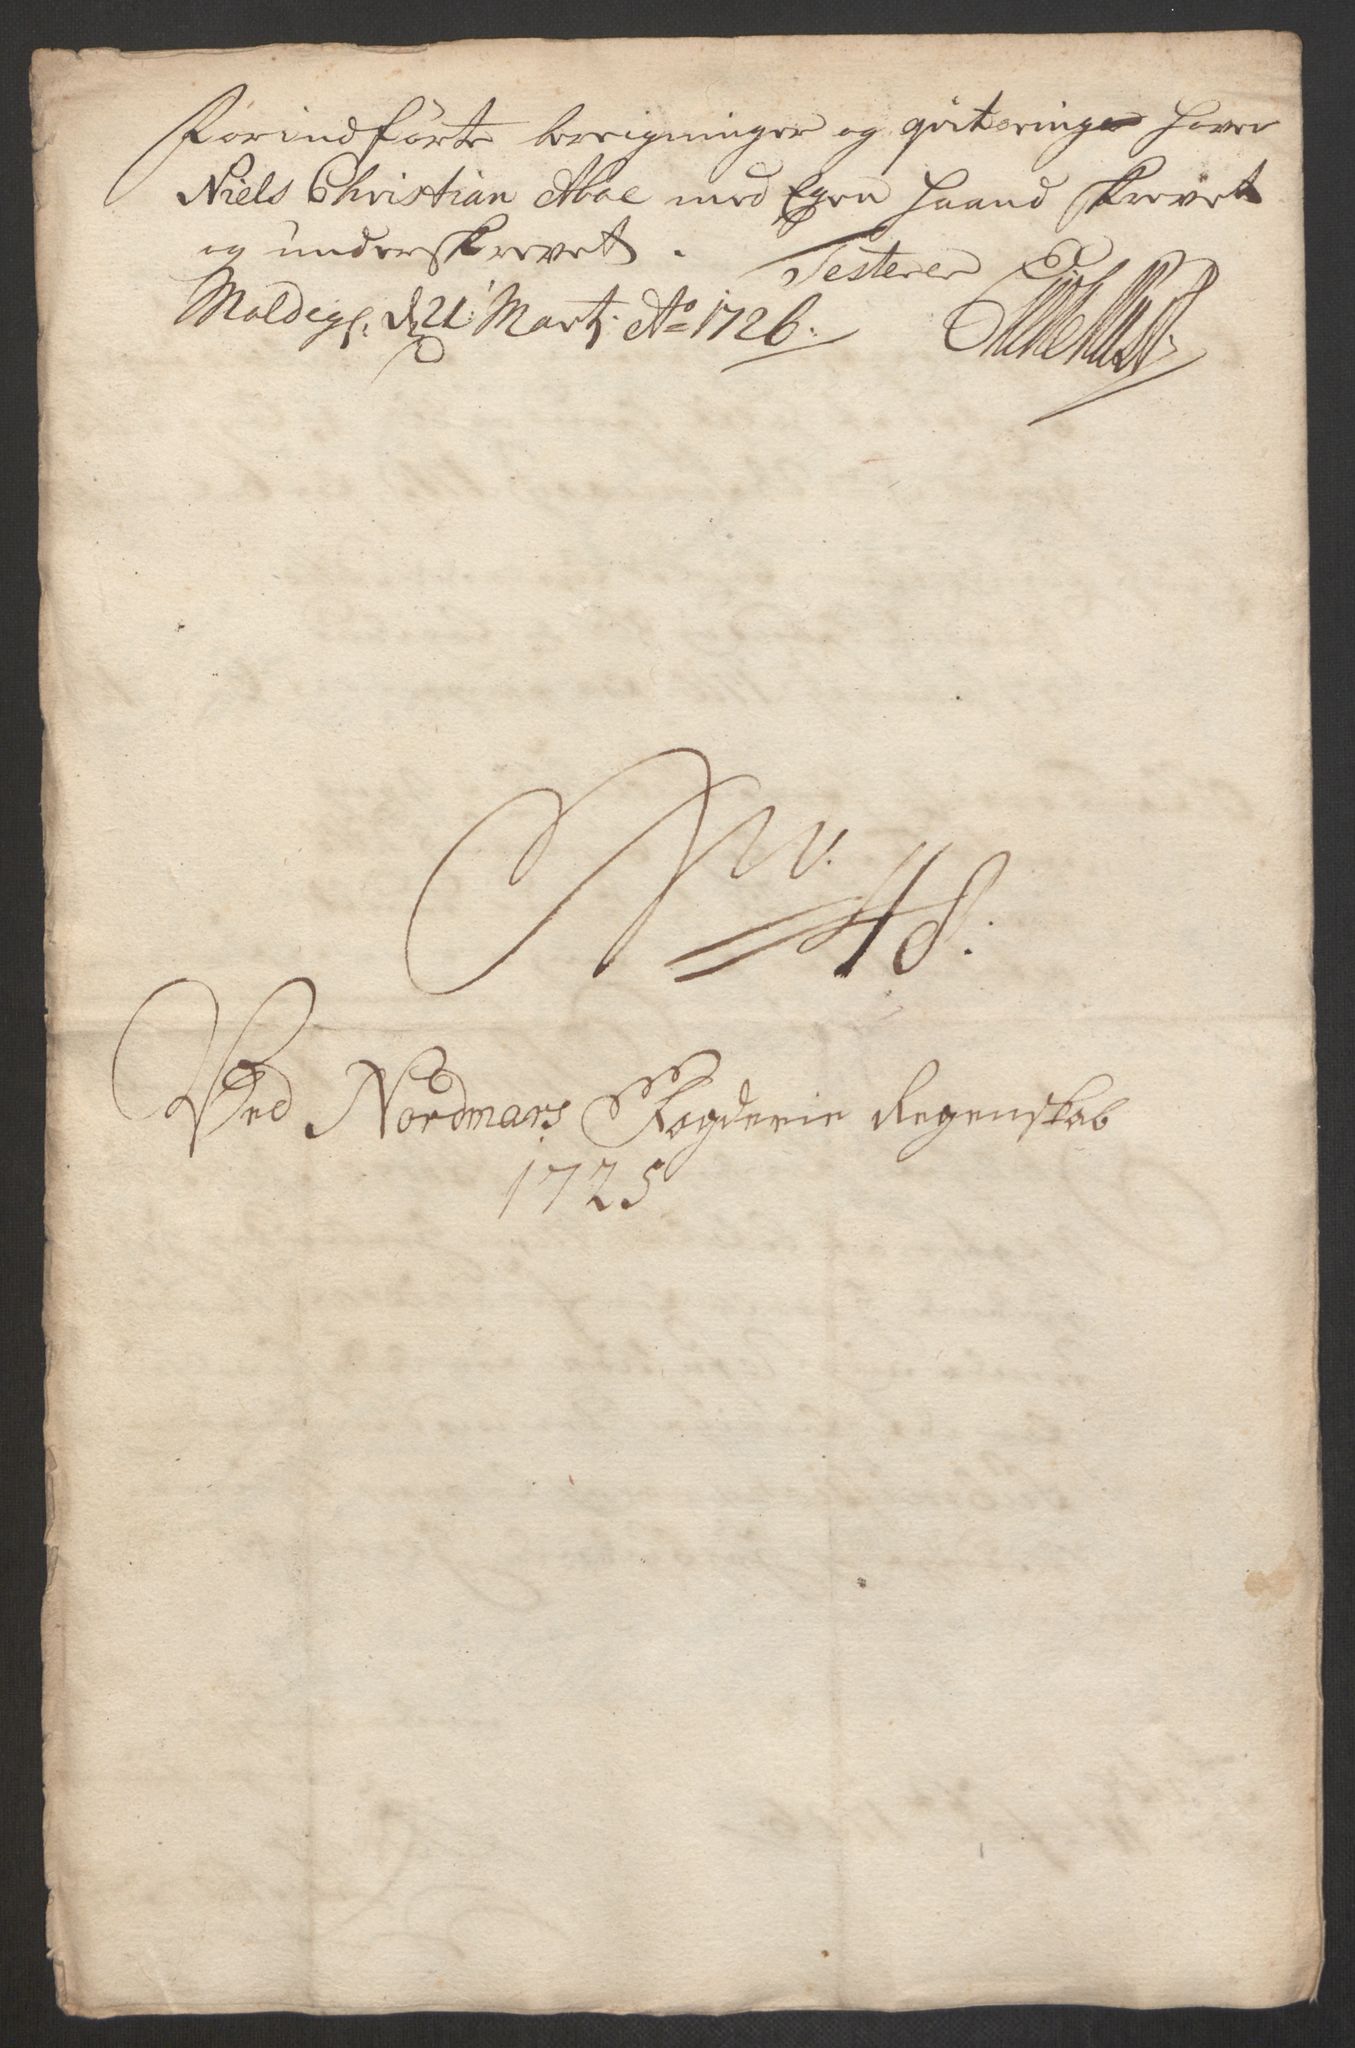 Forindförte beregninger og qviteringer haver
Niels Christian Aboe med Egen Haand skrevet
og underskrevet. Testerer
d 21 Martj Ao 1726.
No. 48.
Ved Nordmørs Fogderie Regenskab
1725